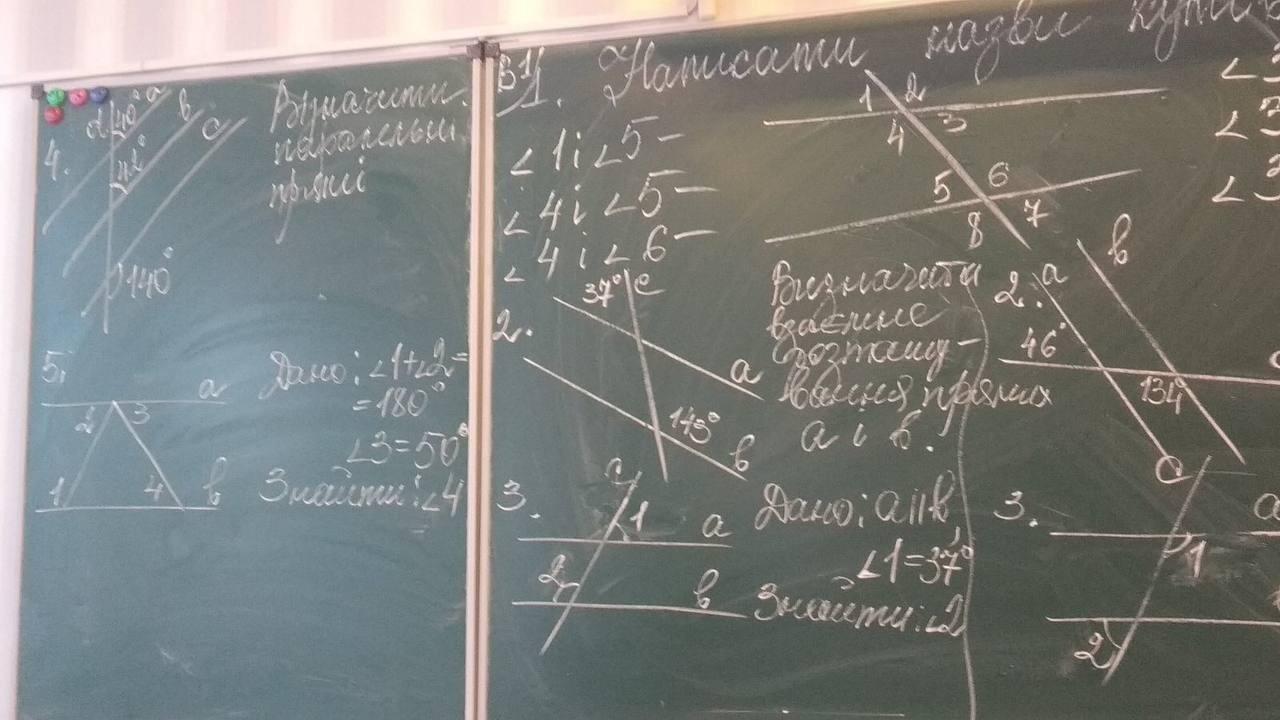 4.
d 40° a в с
42°
140°
Визначити
паралельні
прямі
5.
a
2 3
1 4 в
Дано: ∠1+∠2=
=180°
∠3=50°
Знайти: ∠4
В1
1. Написати назви кутів
∠1 і ∠5 –
∠4 і ∠5 –
∠4 і ∠6 –
1 2
4 3
5 6
8 7
∠3
∠3
∠3
2.
37° с
a
143°
в
Визначити
взаємне
розташу-
вання прямих
а і в.
2. a в
46°
134°
3.
с
1 a
2 в
Дано: a||в,
∠1=37°
Знайти: ∠2
3.
1
2